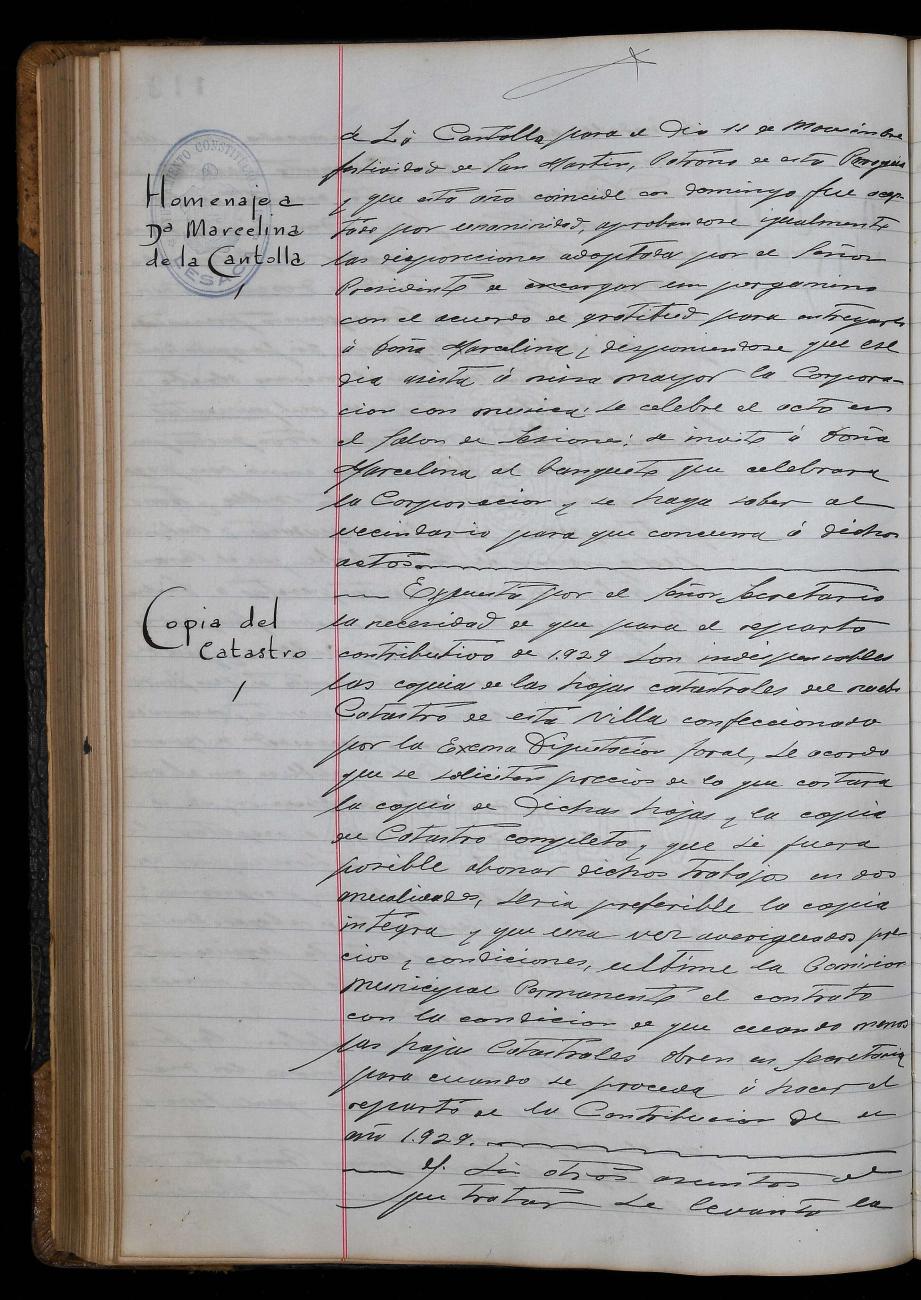 de La Cantolla para el dia 11 de Noviembre
festividad de San Martin, Patrono de esta Parroquia
Homenaje a
Dª Marcelina
de la Cantolla
y que este año coincide con domingo fue acep-
tado por unanimidad, aprobandose igualmente
las disposiciones adoptadas por el Señor
Presidente de encargar un pergamino
con el acuerdo de gratitud para entregarle
á Doña Marcelina; disponiendose que ese
dia asista á misa mayor la Corpora-
cion con musica: se celebre el acto en
el Salon de Sesiones: se invite á Doña
Marcelina al banquete que celebrara
la Corporacion y se haga saber al
vecindario para que concurra á dichos
actos.
Copia del
Catastro
Expuesta por el Señor Secretario
la necesidad de que para el reparto
contributivo de 1.929 son indispensables
las copias de las hojas catastrales del nuevo
Catastro de esta Villa confeccionado
por la Excma Diputacion foral, se acordo
que se soliciten precios de lo que costara
la copia de dichas hojas y la copia
del Catastro completo, y que si fuera
posible abonar dichos trabajos en dos
anualidades, seria preferible la copia
integra y que una vez averiguados pre-
cios y condiciones, ultime la Comision
Municipal Permanente el contrato
con la condicion de que cuando menos
las hojas Catastrales obren en Secretaria
para cuando se proceda á hacer el
reparto de la Contribucion de el
año 1.929.
Y sin otros asuntos de
que tratar se levanta la